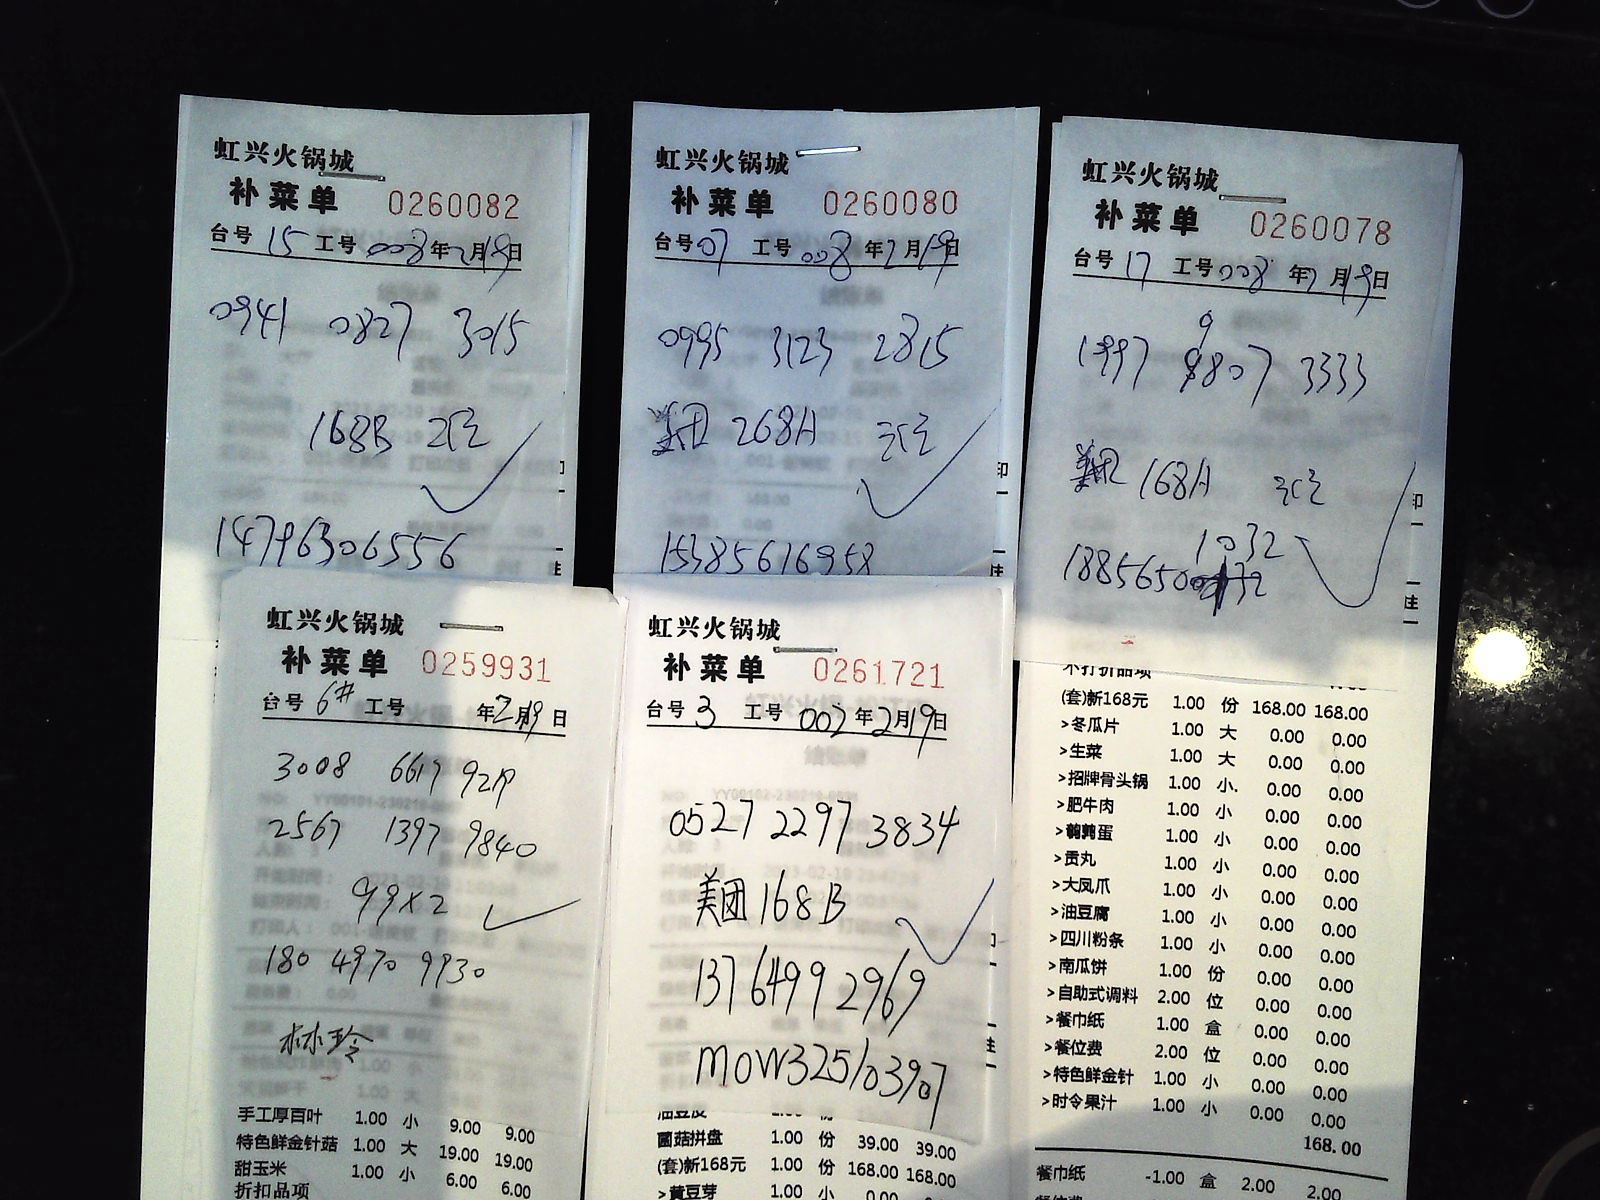 虹兴火锅城
补菜单 0260082
台号 15 工号 008 年2月19日
0941 0827 3015
168B
14796306556
虹兴火锅城
补菜单 0260080
台号 07 工号 008 年2月19日
0995 3123 2815
美团 268A
15385616958
虹兴火锅城
补菜单 0260078
台号 17 工号 008 年2月19日
9
1997 9807 3333
美团 168A
1032
1885650
不打折品项
(套)新168元 1.00 份 168.00 168.00
>冬瓜片 1.00 大 0.00 0.00
>生菜 1.00 大 0.00 0.00
>招牌骨头锅 1.00 小. 0.00 0.00
>肥牛肉 1.00 小 0.00 0.00
>鹌鹑蛋 1.00 小 0.00 0.00
>贡丸 1.00 小 0.00 0.00
>大凤爪 1.00 小 0.00 0.00
>油豆腐 1.00 小 0.00 0.00
>四川粉条 1.00 小 0.00 0.00
>南瓜饼 1.00 份 0.00 0.00
>自助式调料 2.00 位 0.00 0.00
>餐巾纸 1.00 盒 0.00 0.00
>餐位费 2.00 位 0.00 0.00
>特色鲜金针 1.00 小 0.00 0.00
>时令果汁 1.00 小 0.00 0.00
168.00
餐巾纸 -1.00 盒 2.00 2.00
虹兴火锅城
补菜单 0259931
台号 6# 工号 年2月19日
3008 6617
2567 1397 9840
99×2
180 4970 9930
林玲
手工厚百叶 1.00 小 9.00 9.00
特色鲜金针菇 1.00 大 19.00 19.00
甜玉米 1.00 小 6.00 6.00
折扣品项
虹兴火锅城
补菜单 0261721
台号 3 工号 002 年2月19日
0527 2297 3834
美团168B
13764992969
MOW325103907
油豆皮
菌菇拼盘 1.00 份 39.00 39.00
(套)新168元 1.00 份 168.00 168.00
>黄豆芽 1.00 小